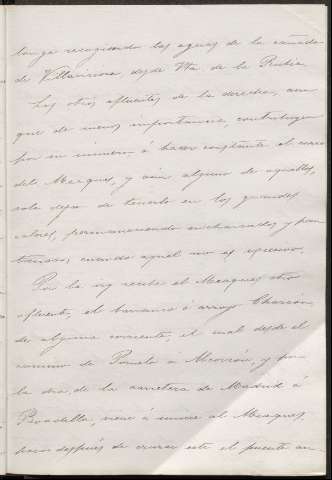 larga recogiendo las aguas de la cañada
de Villaviciosa, desde Vta. de la Rubia.
Los otros afluentes de la derecha, aun
que de menos importancia, contribuyen
por su número á hacer constante el curso
del Meaques, y aún alguno de aquellos,
solo dejan de tenerlo en los grandes
calores, permaneciendo encharcados y pan
tanosos cuando aquel no es excesivo.
Por la izq recibe el Meaques otro
afluente, el barranco ó arroyo
de alguna corriente, el cual desde el
camino de Pozuelo á Alcorcón, y por
la dra. de la carretera de Madrid á
Boadilla, viene á unirse al Meaques,
poco después de cruzar este el puente an